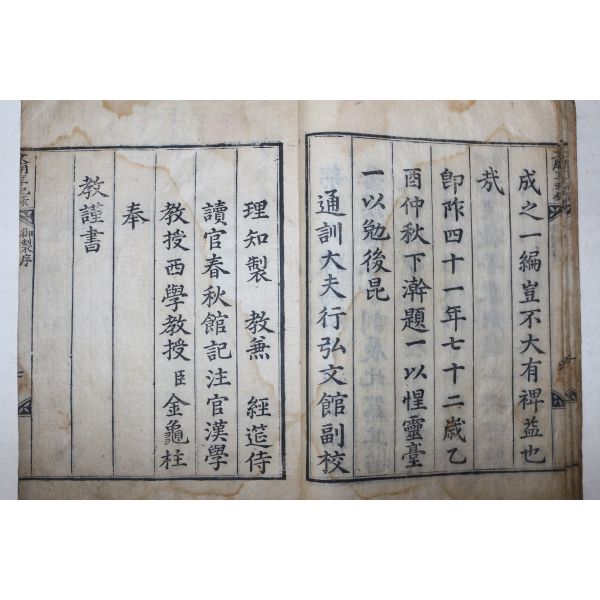 成之一編豈不大有裨益也
哉
卽阼四十一年七十二歲乙
酉仲秋下澣題一以惺靈臺
一以勉後昆
通訓大夫行弘文館副校
理知製 教兼 經筵侍
讀官春秋館記注官漢學
教授西學教授臣金龜柱
奉
教謹書
御製序